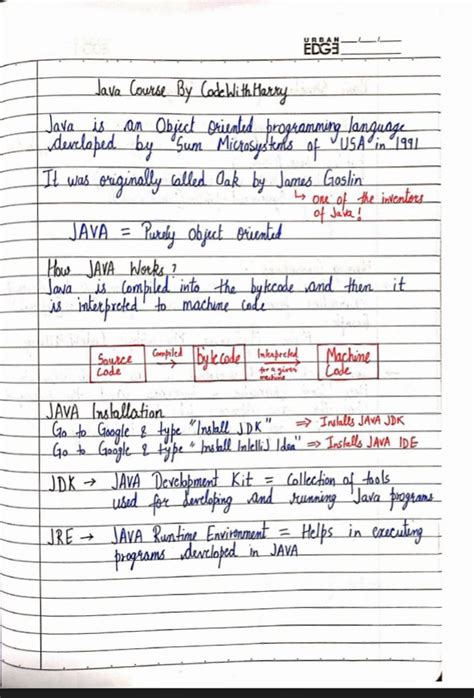 URBAN
EDGE
Java Course By CodeWithHarry
Java is an Object Oriented programming language
developed by Sum Microsystems of USA in 1991
It was originally called Oak by James Goslin
↳ one of the inventors
of Java!
JAVA = Purely object oriented
How JAVA Works?
Java is compiled into the bytecode and then it
is interpreted to machine code
Source Code
Compiled
bytecode
Interpreted for a given machine
Machine Code
JAVA Installation
Go to Google & type "Install JDK" ⇒ Installs JAVA JDK
Go to Google & type "Install IntelliJ Idea" ⇒ Installs JAVA IDE
JDK → JAVA Development Kit = Collection of tools
used for developing and running Java programs
JRE → JAVA Runtime Environment = Helps in executing
programs developed in JAVA